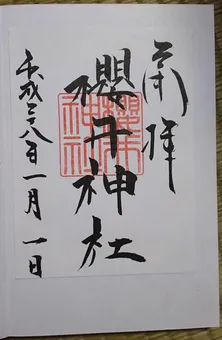 奉拝
櫻井神社
平成二八年一月一日
櫻井神社